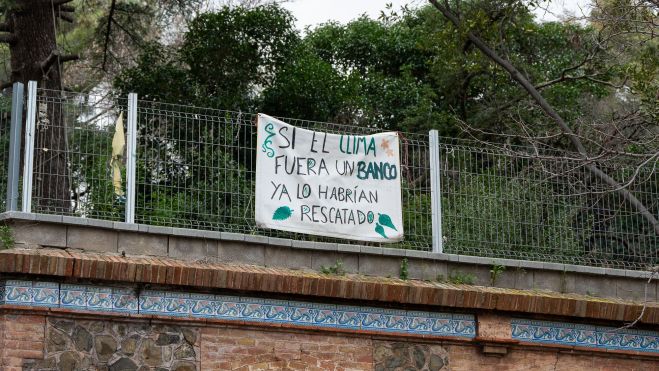 SI EL CLIMA
FUERA UN BANCO
YA LO HABRÍAN
RESCATADO